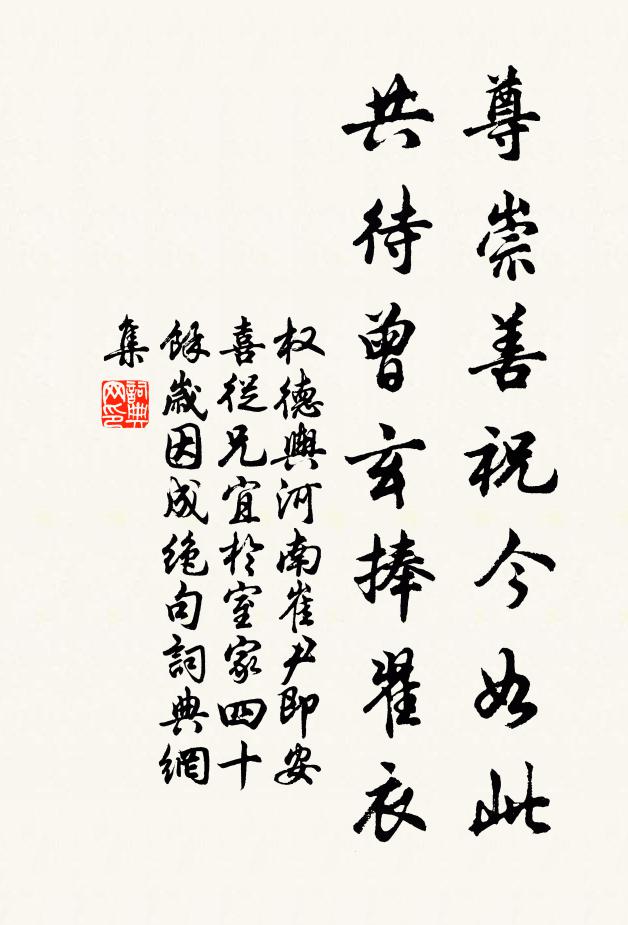 尊崇善祝今如此
共待曾玄捧翟衣
权德輿河南崔尹即安
喜從兄宜於室家四十
餘歲因成绝句詞典網
集
詞典
网印